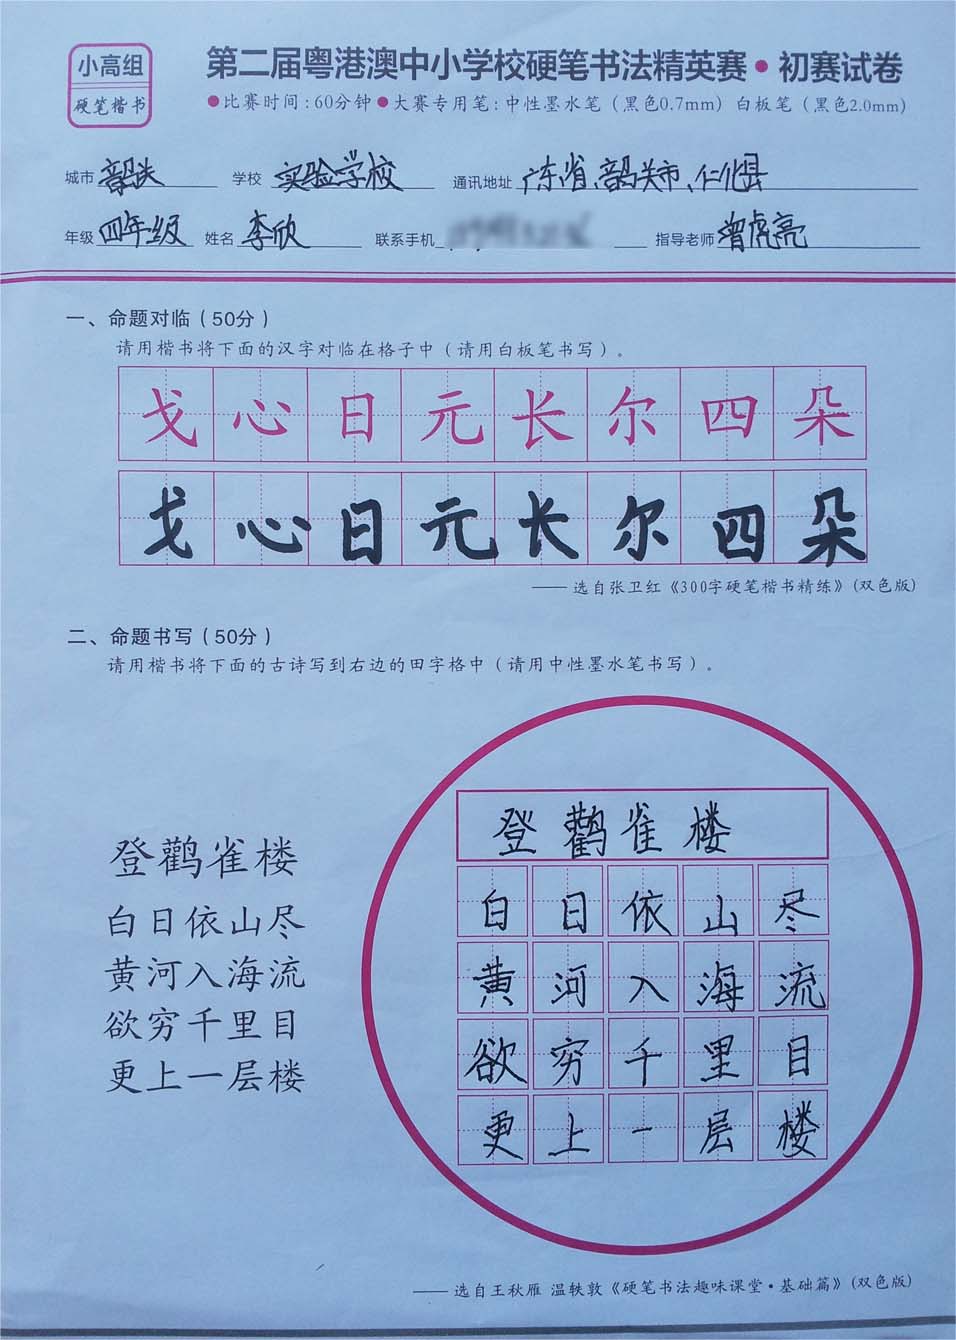 小高组
硬笔楷书
第二届粤港澳中小学校硬笔书法精英赛·初赛试卷
●比赛时间:60分钟●大赛专用笔:中性墨水笔(黑色0.7mm)白板笔(黑色2.0mm)
城市 韶关 学校 实验学校 通讯地址 广东省、韶关市、仁化县
年级 四年级 姓名 李欣 联系手机 指导老师 曾虎亮
一、命题对临(50分)
请用楷书将下面的汉字对临在格子中(请用白板笔书写)。
戈心日元长尔四朵
戈心日元长尔四朵
——选自张卫红《300字硬笔楷书精练》(双色版)
二、命题书写(50分)
请用楷书将下面的古诗写到右边的田字格中(请用中性墨水笔书写)。
登鹳雀楼
白日依山尽
黄河入海流
欲穷千里目
更上一层楼
登鹳雀楼
白日依山尽
黄河入海流
欲穷千里目
更上一层楼
——选自王秋雁 温轶敦《硬笔书法趣味课堂·基础篇》(双色版)